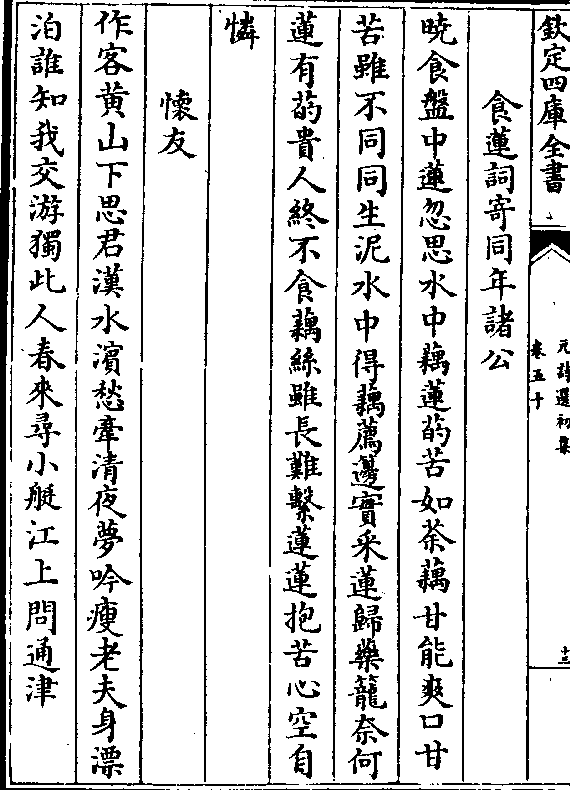 欽定四庫全書
元詩選初集
卷五十
十三
食蓮詞寄同年諸公
曉食盤中蓮忽思水中藕蓮菂苦如荼藕甘能爽口甘
苦雖不同同生泥水中得藕薦籩實采蓮歸藥籠奈何
蓮有菂貴人終不食藕絲雖長難繫蓮蓮抱苦心空自
憐
懷友
作客黄山下思君漢水濱愁牽清夜夢吟瘦老夫身漂
泊誰知我交游獨此人春來尋小艇江上問通津